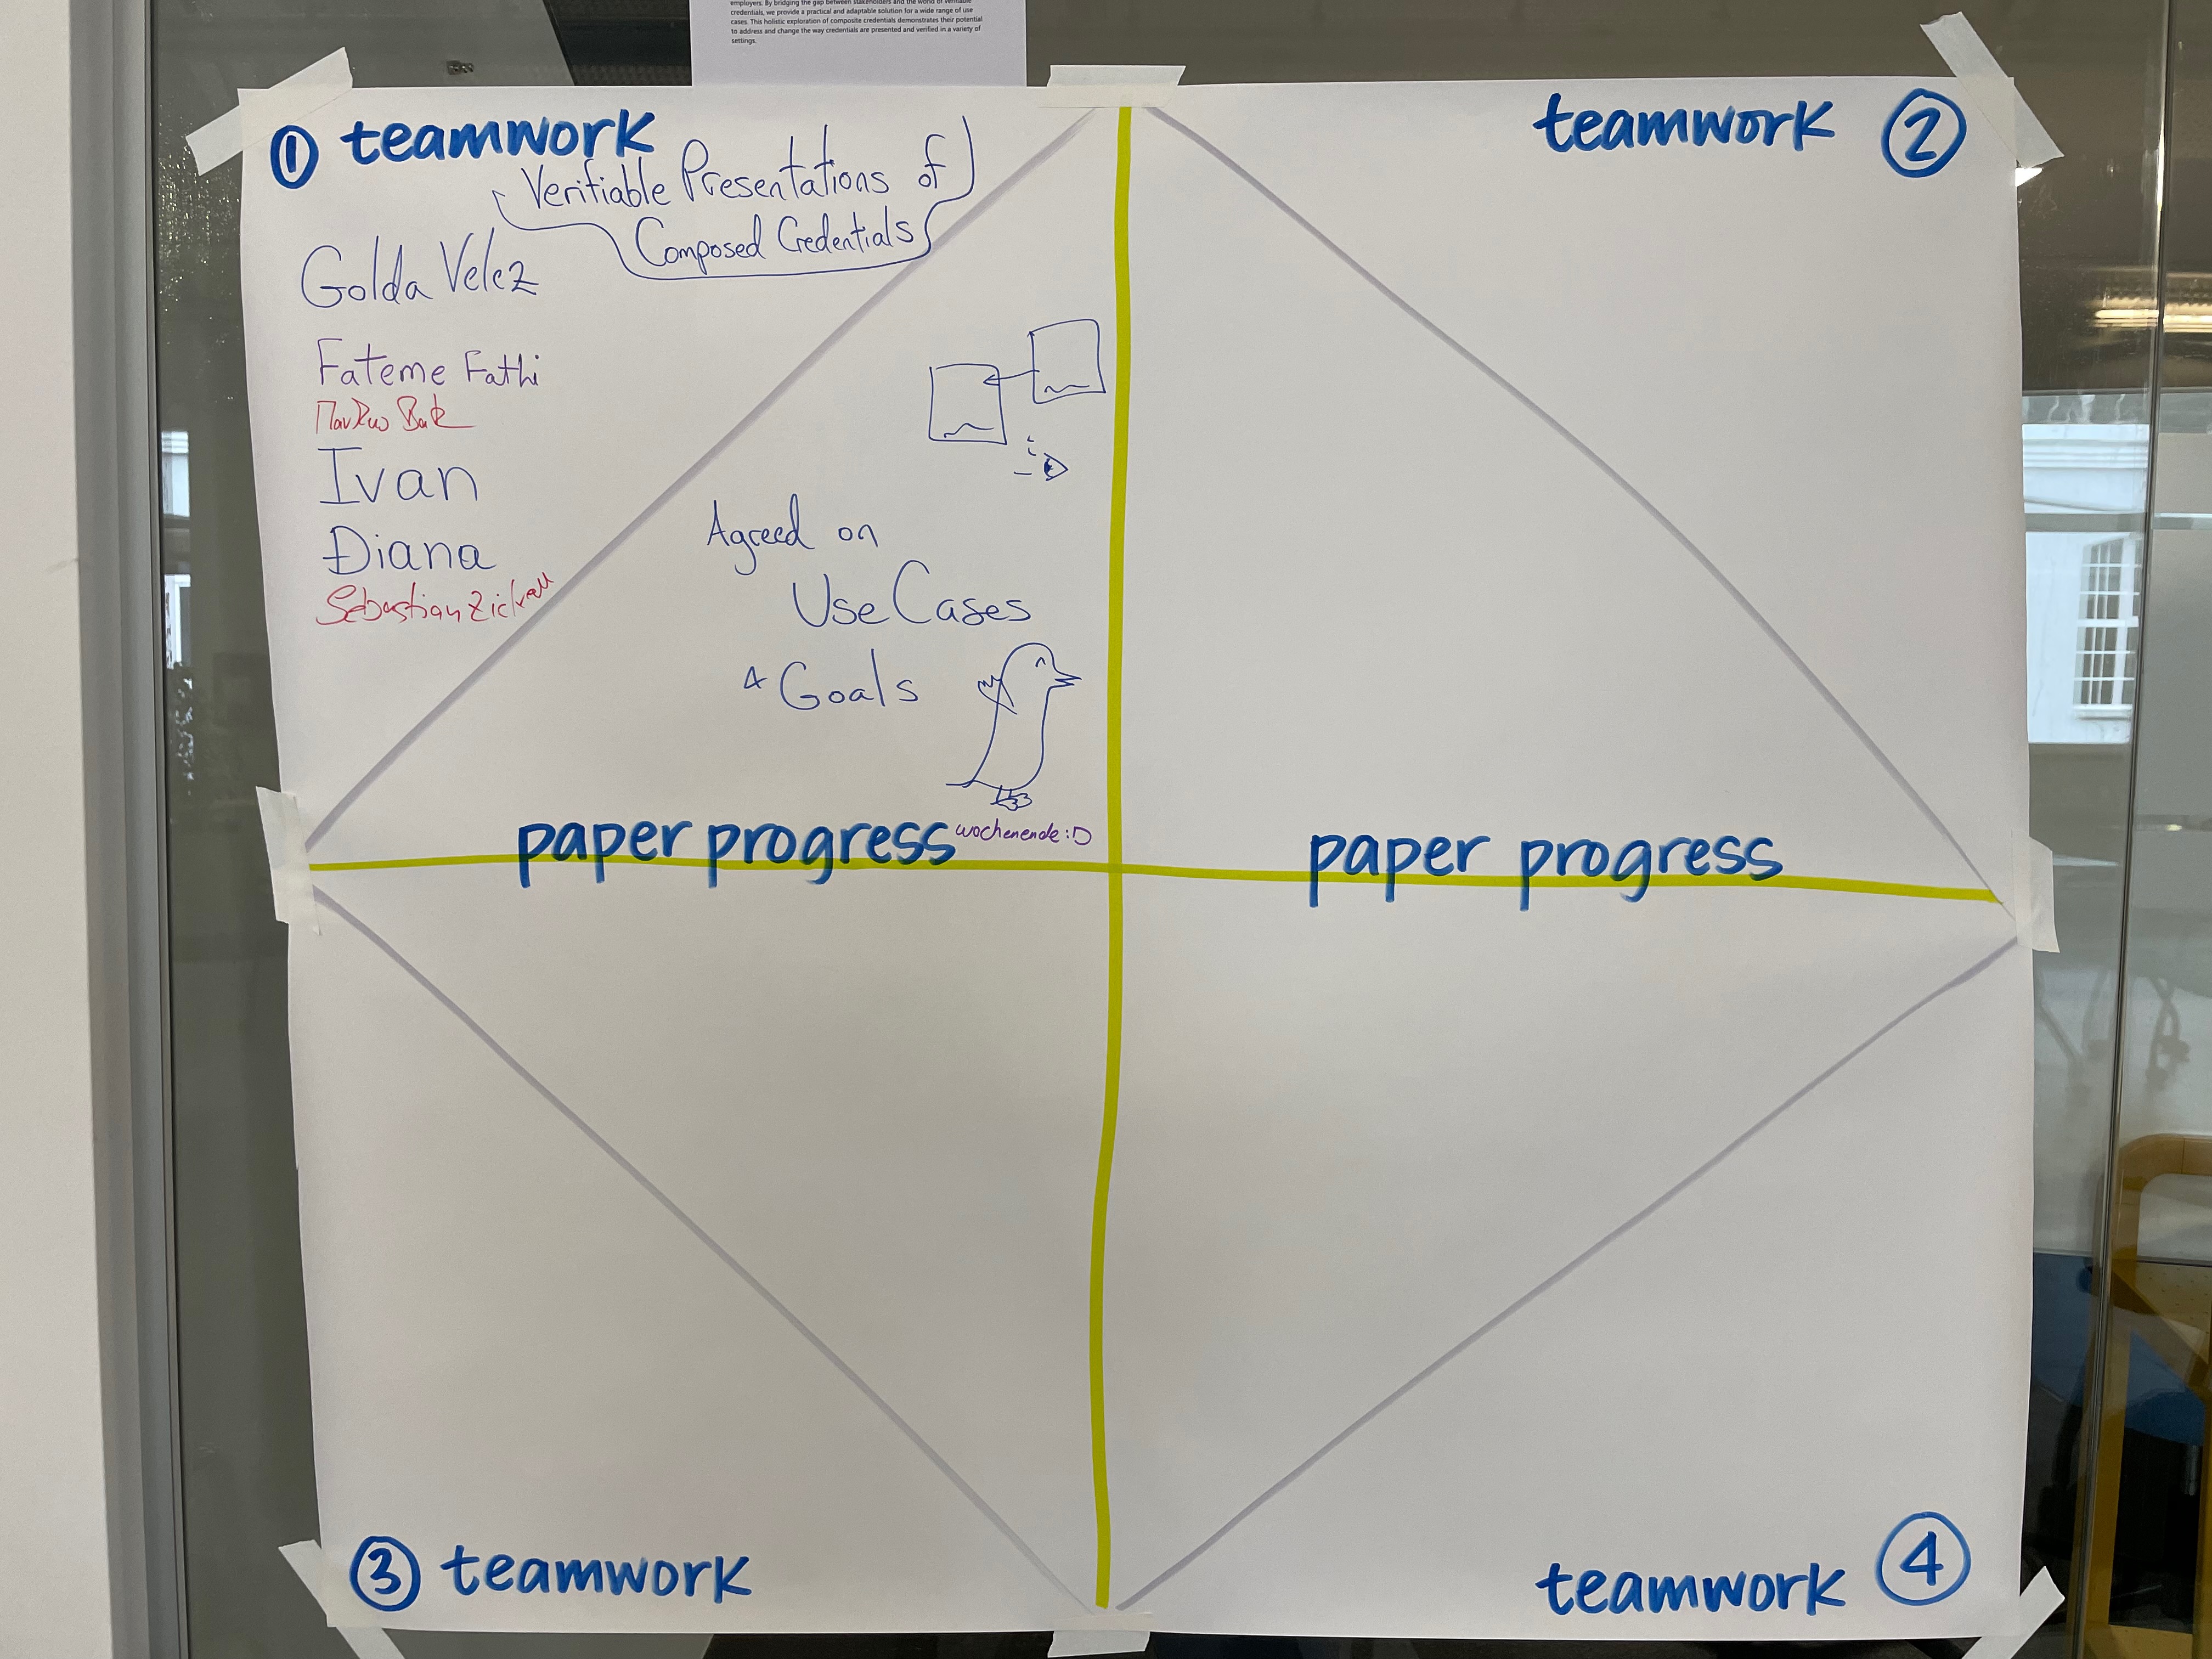 employers. By bridging the gap between stakeholders and the world of verifiable
credentials, we provide a practical and adaptable solution for a wide range of use
cases. This holistic exploration of composite credentials demonstrates their potential
to address and change the way credentials are presented and verified in a variety of
settings.
① teamwork
Verifiable Presentations of
Composed Credentials
Golda Velez
Fateme Fathi
Ivan
Diana
Sebastian
Agreed on
Use Cases
Goals
paper progress
wochenende :D
teamwork ②
paper progress
③ teamwork
teamwork ④